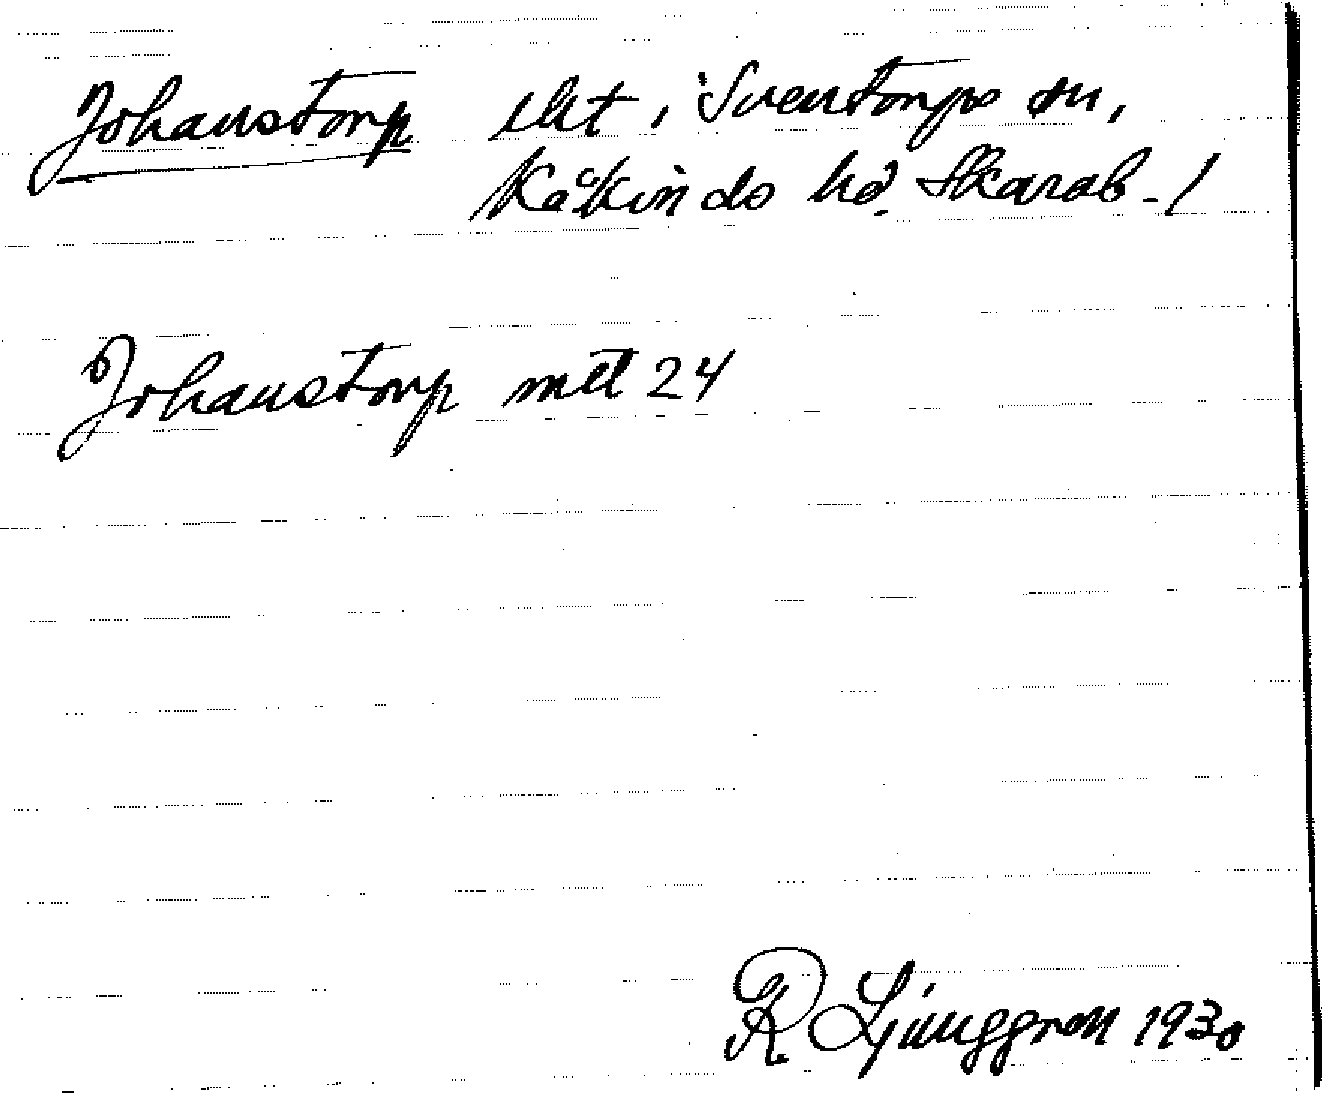 Johanstorp ett, i Sventorps sn,
Kåkinds hd. Skarab. l
Johanstorp mtl 24
R Ljunggren 1930